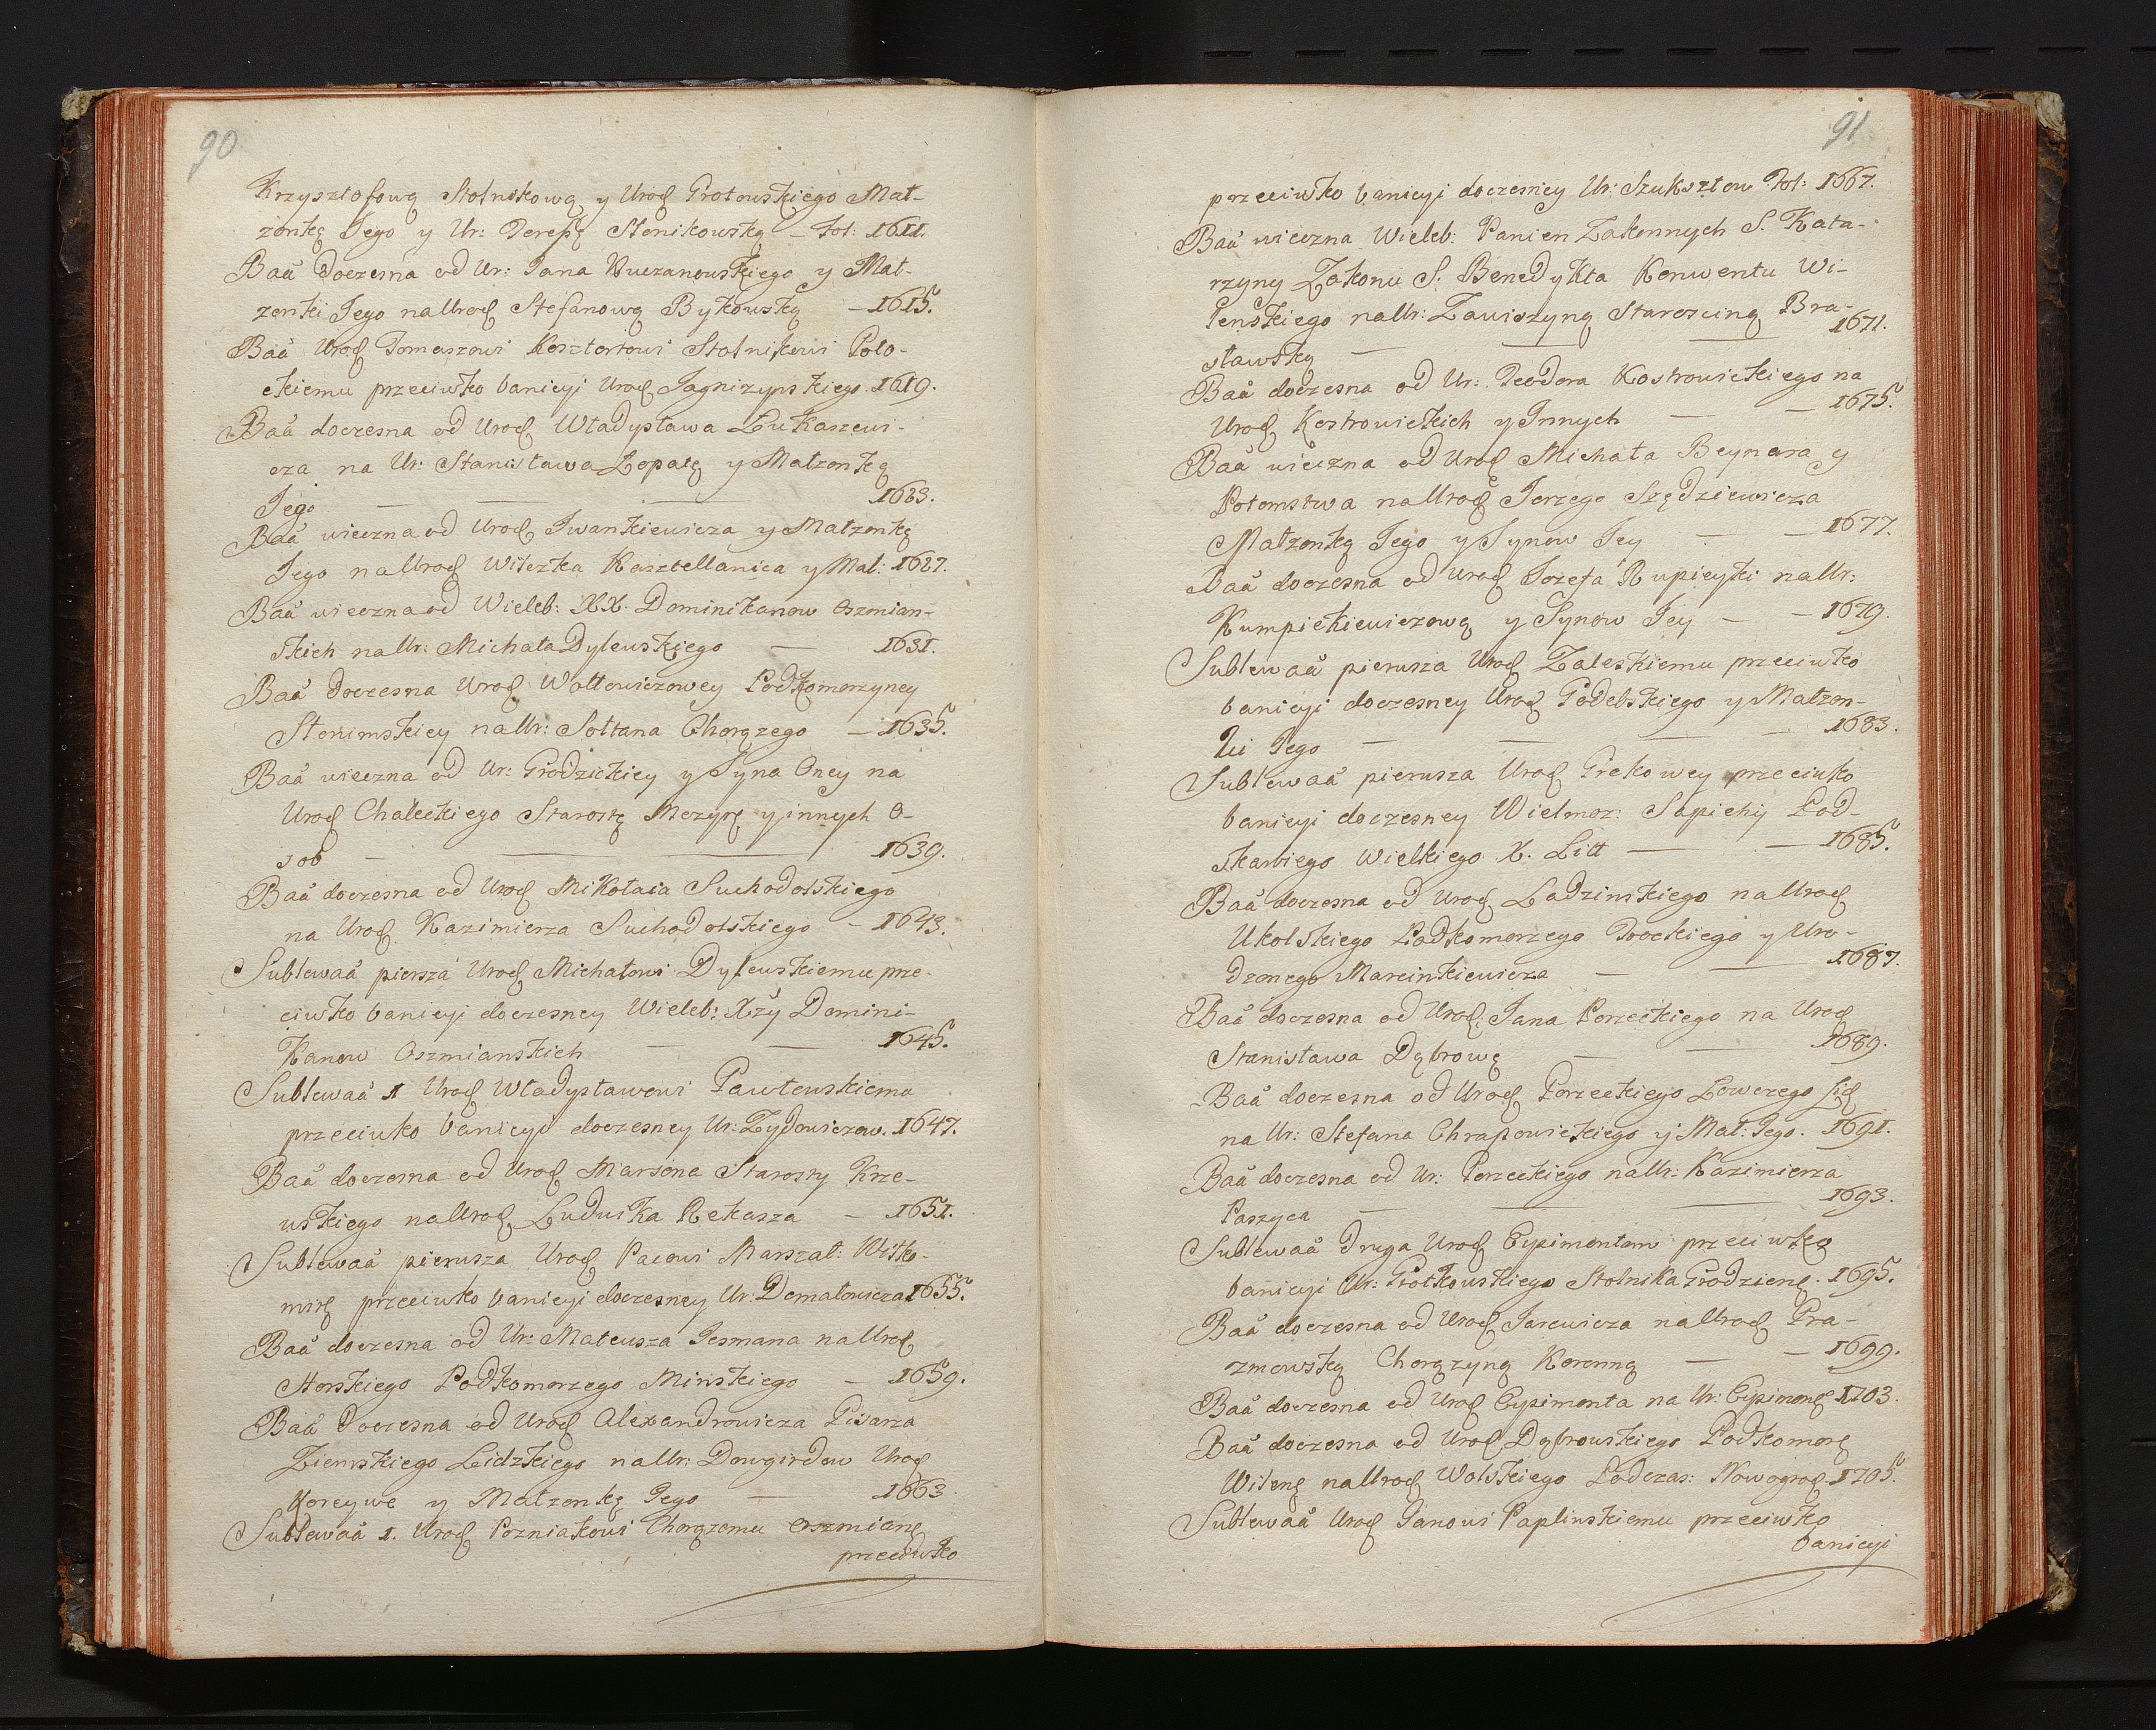 90
Krzysztofową Stolnikową y Urod Grotowskiego Mał-
żonkę Jego y Ur: Teresę Stonikowską fol: 1611.
Baä Doczesna od Ur: Jana Kuczanowskiego y Mał-
żonki Jego na Urod Stefanową Bykowską — 1615.
Baä Urod Tomaszowi Kosztortowi Stolnikowi Poło-
ckiemu przeciwko banicyi Urod Jagnizynskiego. 1619.
Baä doczesna od Urod Władysława Łukaszewi-
cza na Ur: Stanisława Łopatę y Małżonkę
Jego — 1623.
Baä wieczna od Urod Iwankiewicza y Małżonkę
Jego na Urod Witczka Kasztellanica y Mał: 1627.
Baä wieczna od Wieleb: XX. Dominikanow Oszmian-
skich na Ur: Michała Dylewskiego — 1631.
Baä Doczesna Urod Wołłowiczowey Podkomorzyney
Słonimskiey na Ur: Sołtana Chorążego — 1635.
Baä wieczna od Ur: Grodzickiey y Syna Oney na
Urod Chaleckiego Starostę Mozyr y innych O-
sob — 1639.
Baä doczesna od Urod Mikołaia Suchodolskiego
na Urod Kazimierza Suchodolskiego — 1643.
Sublewaä piersza Urod Michałowi Dylewskiemu prze-
ciwko banicyi doczesney Wieleb: Xży Domini-
kanow Oszmianskich — 1645.
Sublewaä 1 Urod Władysławowi Pawłowskiemu
przeciwko banicyi doczesney Ur: Zydowiczow. 1647.
Baä doczesna od Urod Marsona Starosty Krze-
wskiego na Urod Ludwika Rekasza — 1651.
Sublewaä pierwsza Urod Pacowi Marszał: Wiłko-
mir przeciwko banicyi doczesney Ur: Domatowicza 1655.
Baä doczesna od Ur: Mateusza Jesmana na Urod
Horskiego Podkomorzego Minskiego — 1659.
Baä Doczesna od Urod Alexandrowicza Pisarza
Ziemskiego Lidzkiego na Ur: Dowgirdow Urod
Koreywe y Małżonkę Jego — 1663.
Sublewaä 1. Urod Pozniakowi Chorążemu Oszmian
przeciwko
91
przeciwko banicyi doczesney Ur: Szuksztow Fol: 1667.
Baä wieczna Wieleb: Panien Zakonnych S. Kata-
rzyny Zakonu S. Benedykta Konwentu Wi-
lenskiego na Ur: Zawiszyną Starościną Bra-
sławską — 1671.
Baä doczesna od Ur: Teodora Kostrowickiego na
Urod Kostrowickich y Innych — 1675.
Baä wieczna od Urod Michała Beynara y
Potomstwa na Urod Jerzego Szędziewicza
Małżonkę Jego y Synow Jey — 1677.
Baä doczesna od Urod Jozefa Rupieyki na Ur:
Kumpickiewiczową y Synow Jey — 1679.
Sublewaä pierwsza Urod Zaleskiemu przeciwko
banicyi doczesney Urod Godebskiego y Małżon-
ki Jego — 1683.
Sublewaä pierwsza Urod Grekowey przeciwko
banicyi doczesney Wielmoz: Sapiehy Pod-
skarbiego Wielkiego X. Litt — 1685.
Baä doczesna od Urod Ładzinskiego na Urod
Ukolskiego Podkomorzego Trockiego y Uro-
dzonego Marcinkiewicza — 1687.
Baä doczesna od Urod: Jana Porzeckiego na Urod
Stanisława Dąbrowę — 1689.
Baä doczesna od Urod Porzeckiego Łowczego Lid
na Ur: Stefana Chrapowickiego y Mał: Jego. 1691.
Baä doczesna od Ur: Porzeckiego na Ur: Kazimierza
Paszyca — 1693.
Sublewaä Druga Urod Eypimontom przeciwko
banicyi Ur: Grotkowskiego Stolnika Grodzien. 1695.
Baä doczesna od Urod Jarewicza na Urod Pra-
zmowską Chorążyną Koronną — 1699.
Baä doczesna od Urod Eypimonta na Ur: Eypimon 1703.
Baä doczesna od Urod Dąbrowskiego Podkomor
Wilen na Urod Wolskiego Podczas: Nowogrod. 1705.
Sublewaä Urod Janowi Paplinskiemu przeciwko
banicyi